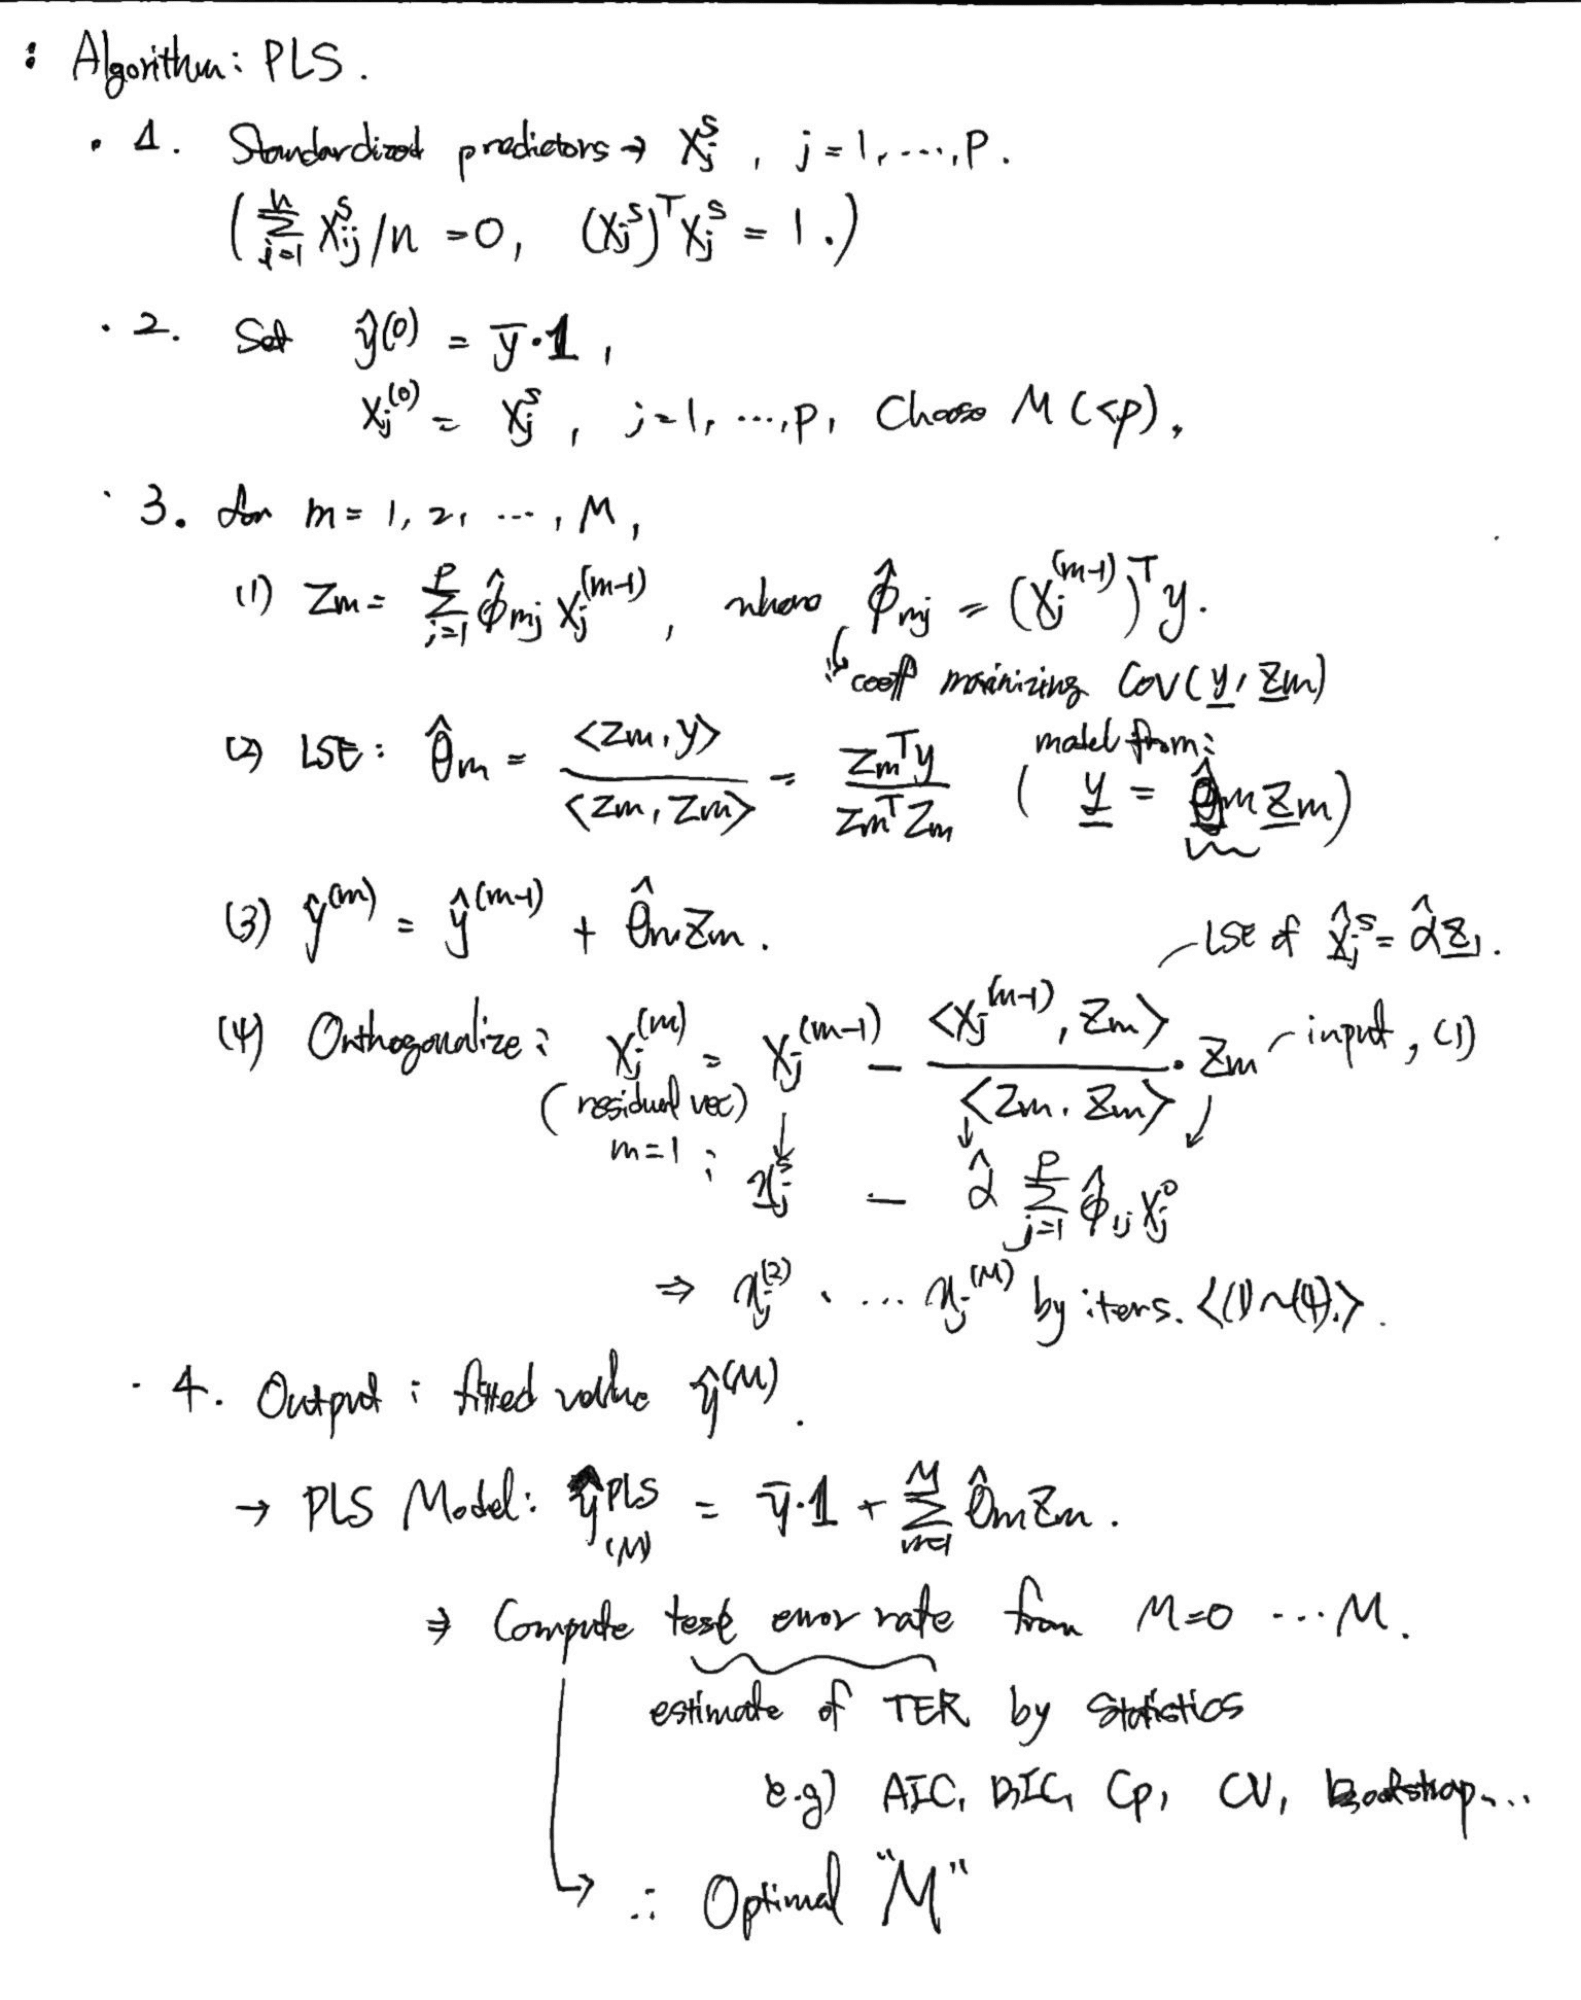 : Algorithm: PLS.
· 1. Standardized predictors → X_j^S, j=1,...,P.
(∑_{i=1}^n X_ij^S/n =0, (X_j^S)^T X_j^S = 1.)
· 2. Set ŷ^(0) = ȳ·𝟏,
X_j^(0) = X_j^S, j=1, ...,p, Choose M (<p).
· 3. for m = 1, 2, ..., M,
(1) Zm = ∑_{j=1}^P φ̂_mj X_j^(m-1), where φ̂_mj = (X_j^(m-1))^T y.
: coeff maximizing Cov(y, Zm)
(2) LSE: θ̂m = <Zm, y> / <Zm, Zm> = Zm^T y / Zm^T Zm (model from: y = θ̂m Zm)
(3) ŷ^(m) = ŷ^(m-1) + θ̂m Zm.
LSE of X̂_j^S = α̂ Z_1.
(4) Orthogonalize: X_j^(m) = X_j^(m-1) - <X_j^(m-1), Zm> / <Zm, Zm> · Zm input, (1)
(residual vec)
m=1 : x_j^S - α̂ ∑_{j=1}^P φ̂_1j X_j^0
⇒ x_j^(2), ... x_j^(M) by iters. <(1)~(4).>.
· 4. Output : fitted value ŷ^(M).
→ PLS Model: ŷ^PLS_(M) = ȳ·𝟏 + ∑_{m=1}^M θ̂m Zm.
⇒ Compute test error rate from M=0 ... M.
estimate of TER by Statistics
e.g) AIC, BIC, Cp, CV, Bootstrap...
→ ∴ Optimal "M"